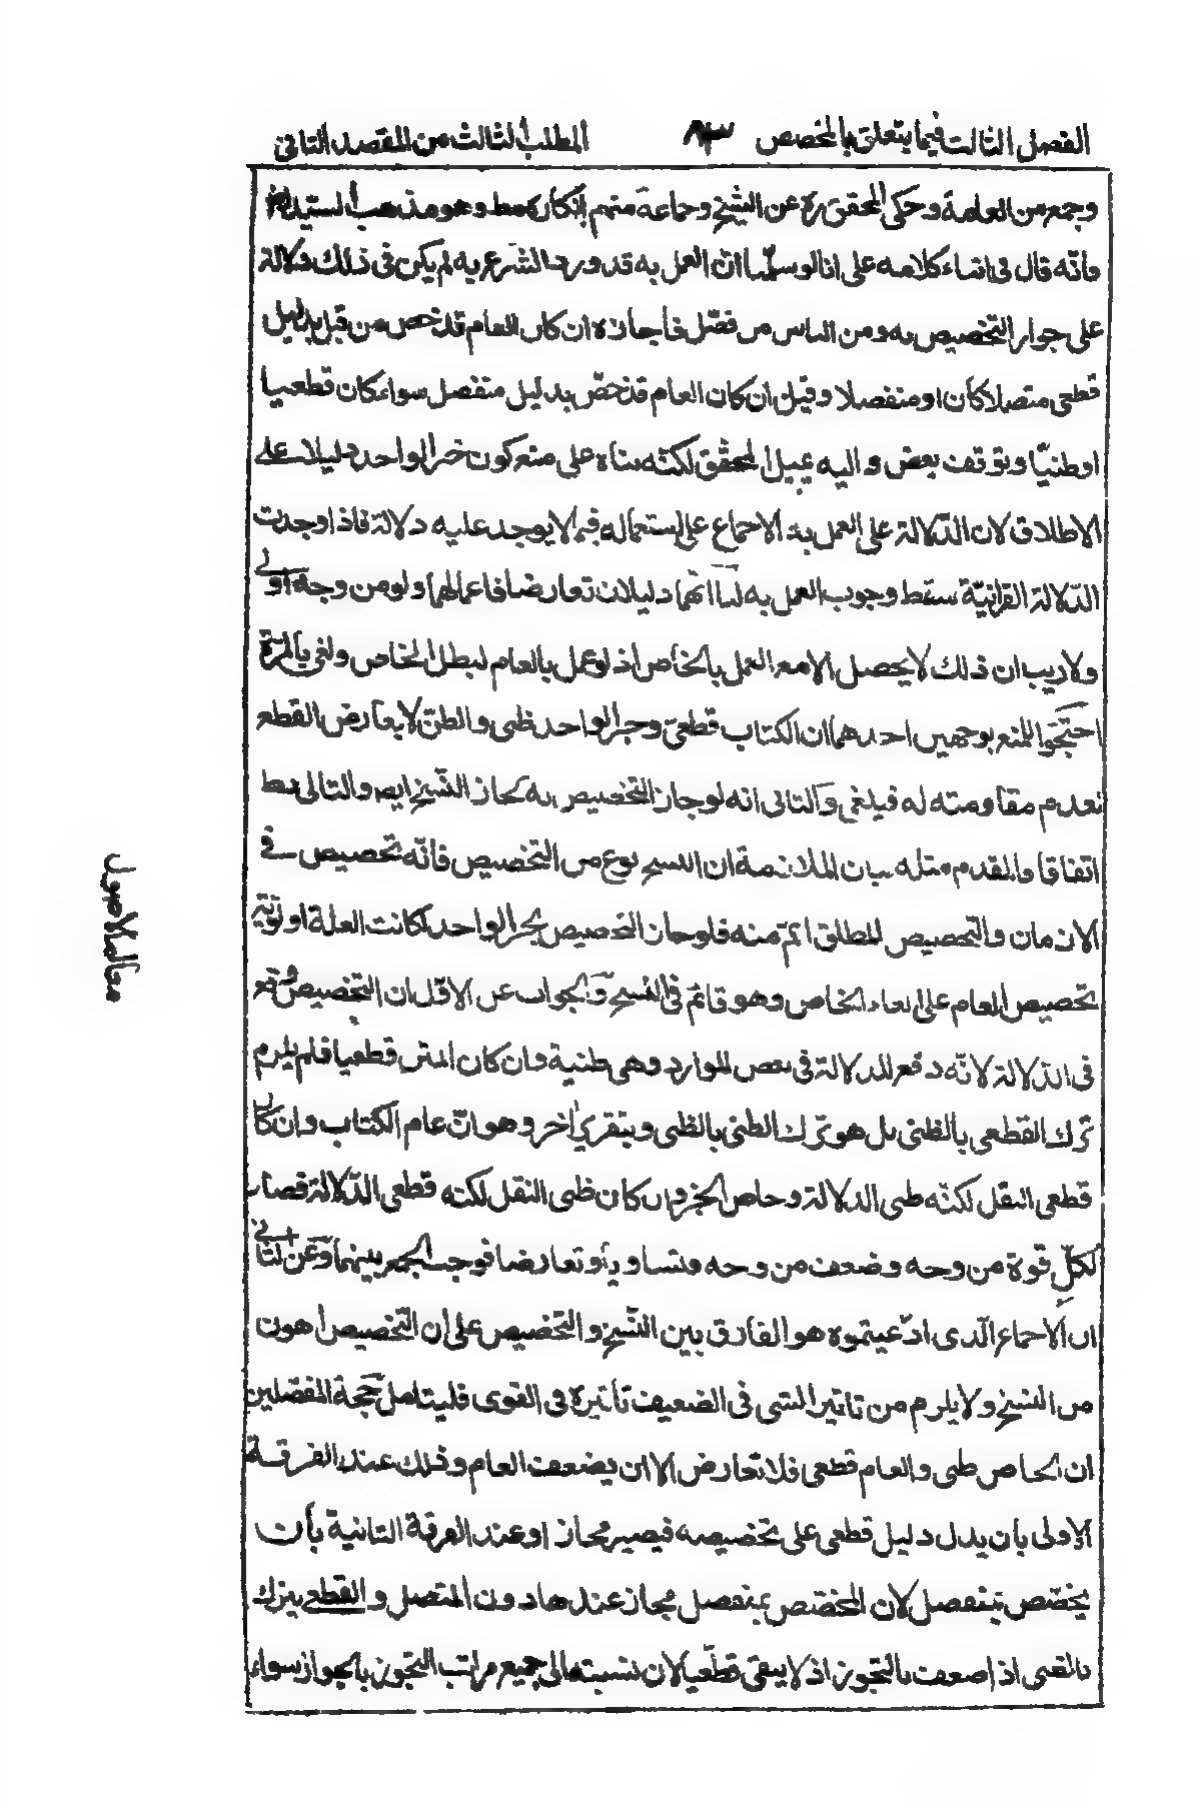 الفصل الثالث فيما يتعلق بالمخصص ٨٣ المطلب الثالث من المقصد الثاني
وجمع من العامة وحكى المحقق ره عن الشيخ وجماعة منهم إنكاره مط وهو مذهب السيد ره
فانه قال فى اثناء كلامه على انا لو سلمنا ان العمل به قد ورد الشرع به لم يكن فى ذلك دلالة
على جواز التخصيص به ومن الناس من فصّل فأجازه ان كان العام قد خص من قبل بدليل
قطعى متصلا كان او منفصلا وقيل ان كان العام قد خصّ بدليل منفصل سواء كان قطعيا
او ظنيّا وتوقف بعض واليه يميل المحقق لكنّه بناه على منع كون خبر الواحد دليلا على
الاطلاق لان الدّلالة على العمل به الاجماع على استعماله فيما لا يوجد عليه دلالة فاذا وجدت
الدّلالة القرآنيّة سقط وجوب العمل به لنا انّهما دليلان تعارضا فاعمالهما ولو من وجه أولى
ولا ريب ان ذلك لا يحصل الا مع العمل بالخاص اذ لو عمل بالعام لبطل الخاص ولغى بالمرّة
احتجّوا للمنع بوجهين احدهما ان الكتاب قطعىّ وخبر الواحد ظنى والظنّ لا يعارض القطع
لعدم مقاومته له فيلغى والثانى انه لو جاز التخصيص به لجاز النّسخ ايض والتالى بط
اتفاقا والمقدم مثله بيان الملازمة ان النسخ نوع من التخصيص فانّه تخصيص فى
الازمان والتخصيص المطلق اعمّ منه فلو جاز التخصيص بخبر الواحد لكانت العلة اولويّة
تخصيص العام على الغاء الخاص وهو قائم فى النسخ والجواب عن الاول ان التخصيص وقع
فى الدّلالة لانّه دفع للدلالة فى بعض الموارد وهى ظنية وان كان المتن قطعيا فلم يلزم
ترك القطعى بالظنى بل هو ترك الظنى بالظنى وبتقرير آخر وهو انّ عام الكتاب وان كان
قطعى النقل لكنّه ظنى الدلالة وخاص الخبر وان كان ظنى النقل لكنه قطعى الدّلالة فصار
لكلّ قوة من وجه وضعف من وجه فتساويا وتعارضا فوجب الجمع بينهما وعن الثانى
ان الاجماع الّذى ادّعيتموه هو الفارق بين النّسخ والتخصيص على ان التخصيص أهون
من النسخ ولا يلزم من تاثير الشى فى الضعيف تأثيره فى القوى فليتامل حجة المفصّلين
ان الخاص ظنى والعام قطعى فلا تعارض الا ان يضعف العام وذلك عند الفرقة
الاولى بان يدل دليل قطعى على تخصيصه فيصير مجازا وعند الفرقة الثانية بأن
يخصّص بمنفصل لان المخصّص بمنفصل مجاز عندها دون المتصل والقطعى يترك
بالظنى اذا ضعف بالتجوز اذ لا يبقى قطعيا لان نسبته الى جميع مراتب التجوز بالجواز سواء
معالم الاصول